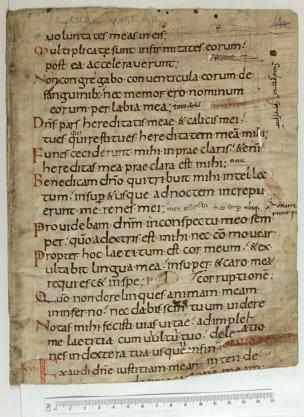 voluntates meas in eis;
Multiplicate sunt infirmitates eorum
post ea accelerauerunt;
Non congregabo conuenticula eorum de
sanguinib; nec memor ero nominum
eorum per labia mea;
Dns pars hereditatis meae & calicis mei
tu es qui restitues hereditatem meā mihi;
Funes ceciderunt mihi in praeclaris & enī
hereditas mea praeclara est mihi;
Benedicam dnō qui tribuit mihi intellec
tum, insup & usque ad noctem increpu
erunt me renes mei;
Prouidebam dnm in conspectu meo sem
per, quō a dextris est mihi ne cōmouear
Propter hoc laetatum est cor meum, & ex
ultabit lingua mea, insuper & caro mea
requiescē in spe;
corruptionē;
Quō non derelinques animam meam
in inferno, nec dabis scm tuum uidere
Notas mihi fecisti uias uitae, adimple
me laetitia cum uultu tuo, delectatio
nes in dextera tua usque in finē
Exaudi dne iustitiam meam, intende